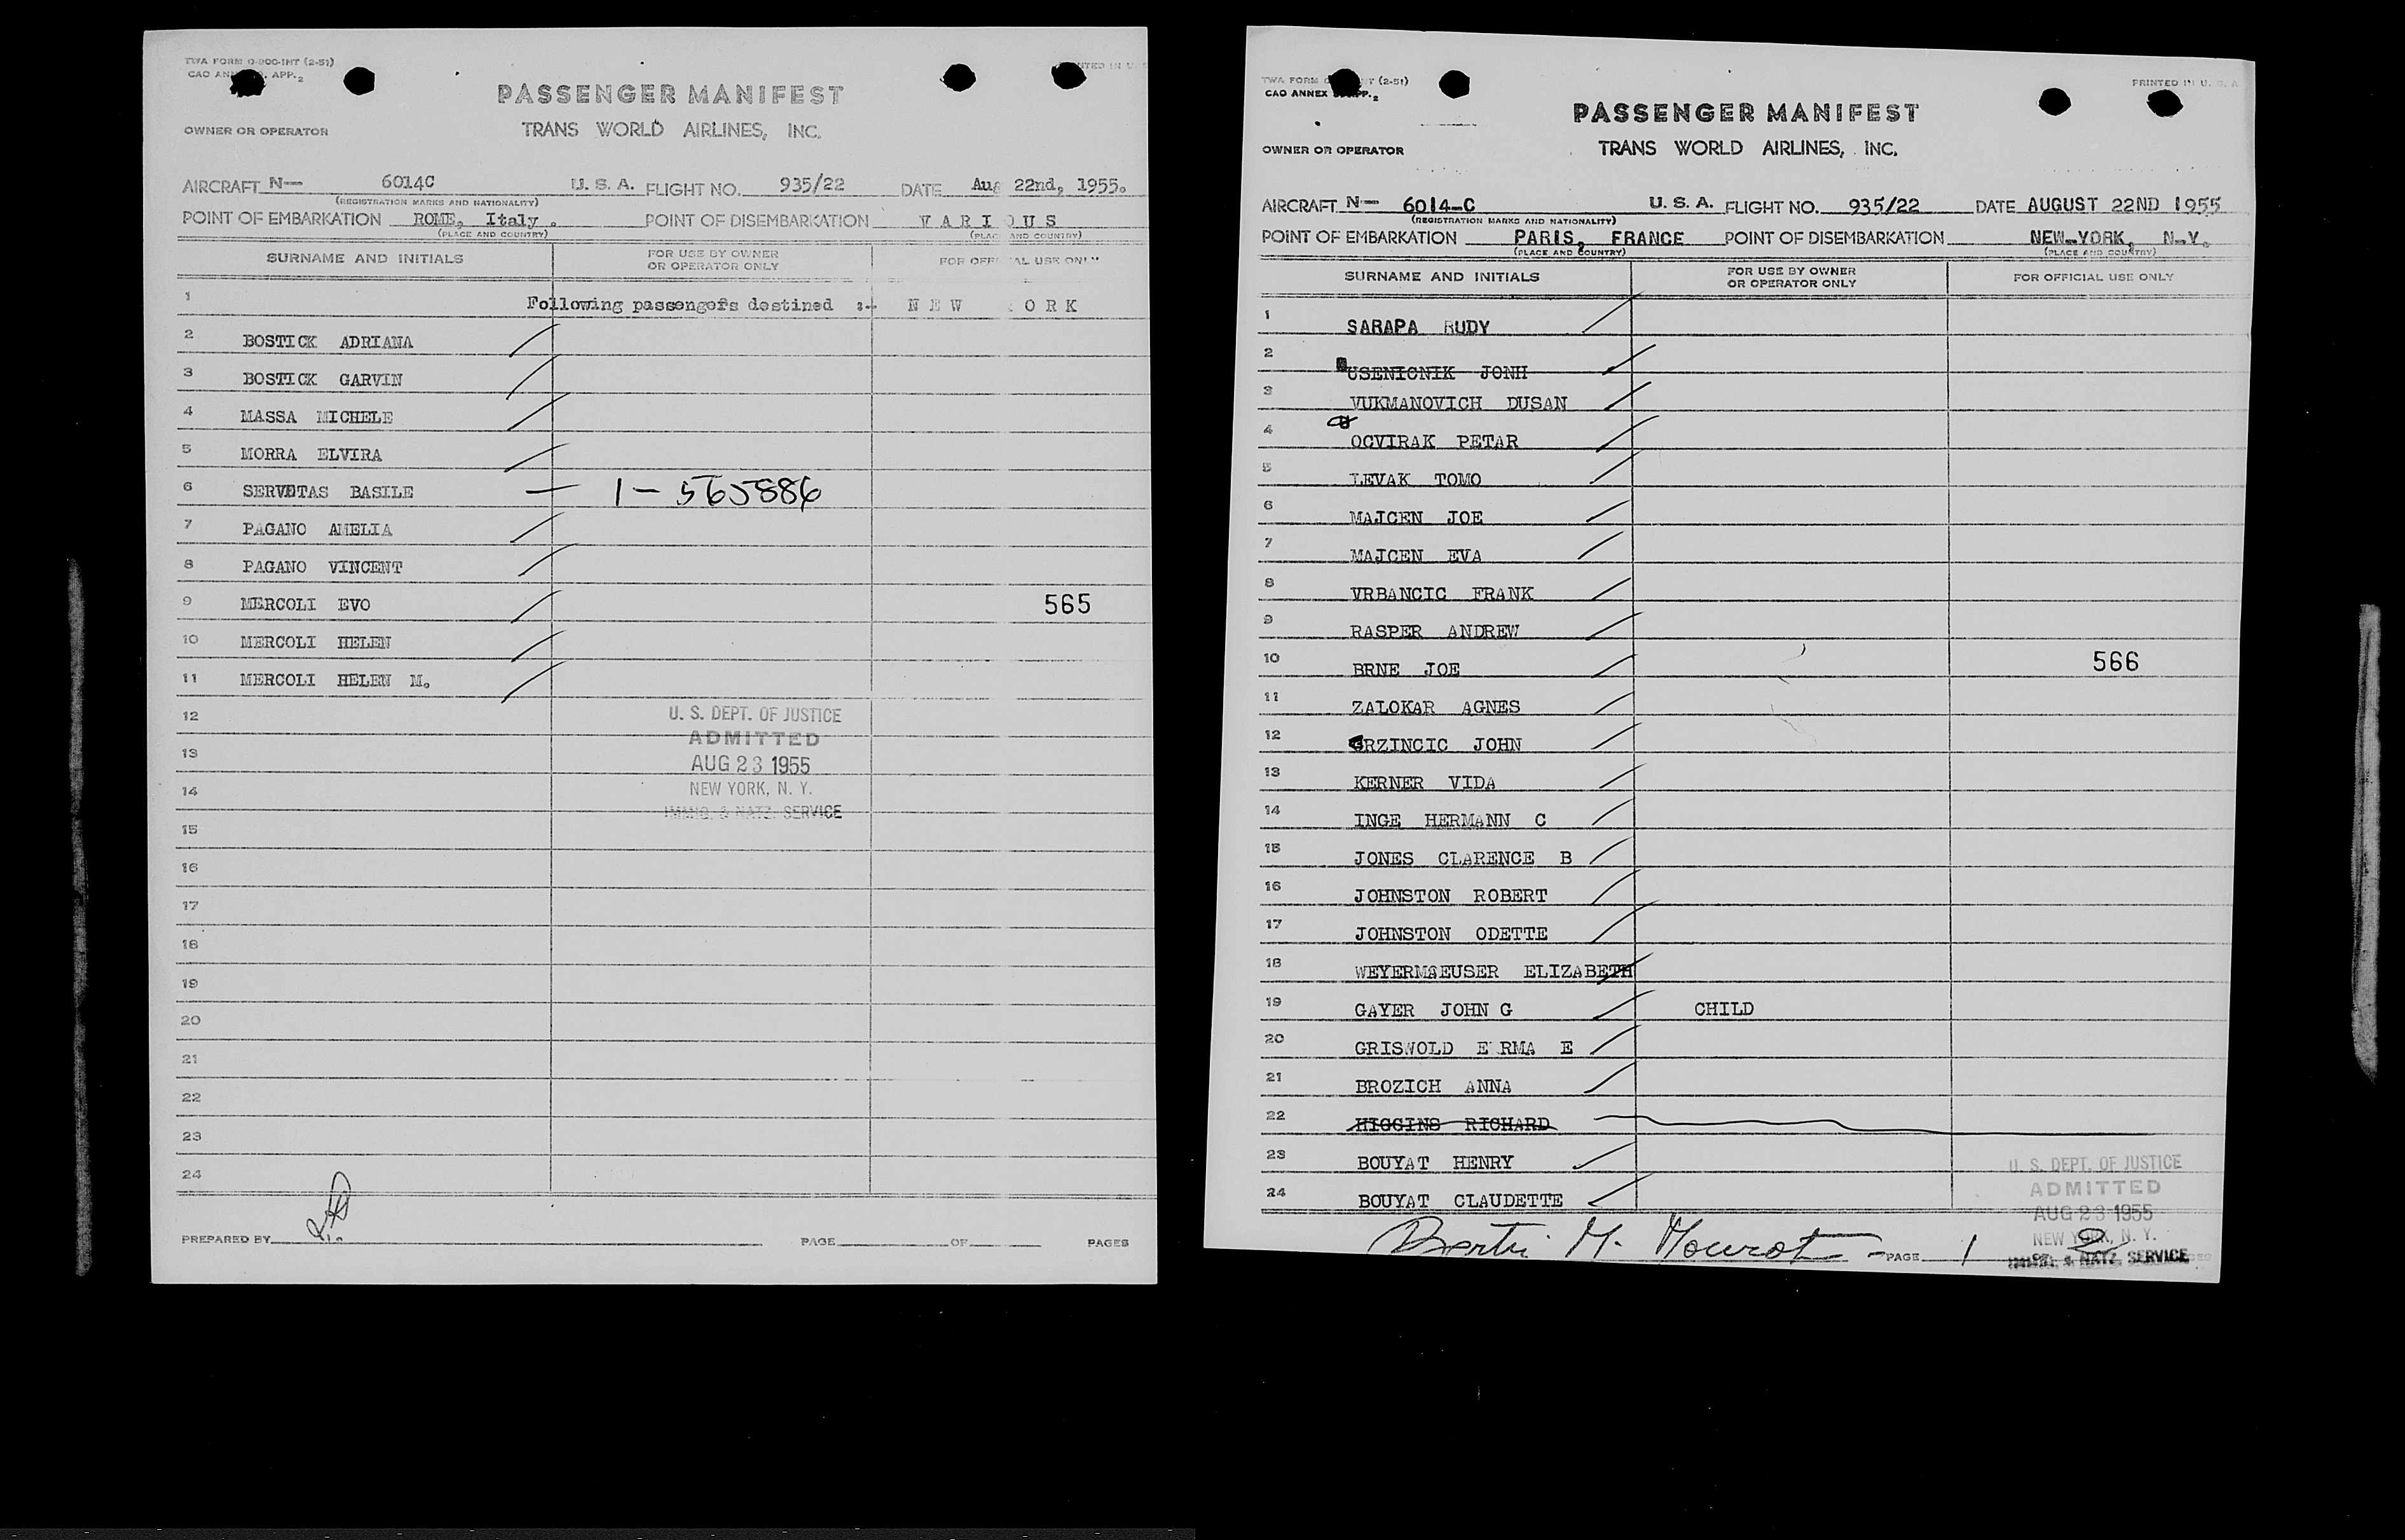 TWA FORM 0-200-INT (2-51)
PASSENGER MANIFEST
OWNER OR OPERATOR
TRANS WORLD AIRLINES, INC.
AIRCRAFT N- 6014C U. S. A. FLIGHT NO. 935/22 DATE Aug 22nd, 1955.
(REGISTRATION MARKS AND NATIONALITY)
POINT OF EMBARKATION ROME, Italy. POINT OF DISEMBARKATION VARIOUS
(PLACE AND COUNTRY) (PLACE AND COUNTRY)
SURNAME AND INITIALS FOR USE BY OWNER OR OPERATOR ONLY FOR OFFICIAL USE ONLY
1 Following passengers destined :- NEW ORK
2 BOSTICK ADRIANA
3 BOSTICK GARVIN
4 MASSA MICHELE
5 MORRA ELVIRA
6 SERVETAS BASILE — 1-565886
7 PAGANO AMELIA
8 PAGANO VINCENT
9 MERCOLI EVO 565
10 MERCOLI HELEN
11 MERCOLI HELEN M.
12
13
14
15
16
17
18
19
20
21
22
23
24
U. S. DEPT. OF JUSTICE
ADMITTED
AUG 23 1955
NEW YORK, N. Y.
IMMIG. & NATZ. SERVICE
PREPARED BY PAGE OF PAGES
TWA FORM (2-51) PRINTED IN U. S. A
CAO ANNEX APP. 2
PASSENGER MANIFEST
OWNER OR OPERATOR
TRANS WORLD AIRLINES, INC.
AIRCRAFT N- 6014-C U. S. A. FLIGHT NO. 935/22 DATE AUGUST 22ND 1955
(REGISTRATION MARKS AND NATIONALITY)
POINT OF EMBARKATION PARIS, FRANCE POINT OF DISEMBARKATION NEW-YORK, N.Y.
(PLACE AND COUNTRY) (PLACE AND COUNTRY)
SURNAME AND INITIALS FOR USE BY OWNER OR OPERATOR ONLY FOR OFFICIAL USE ONLY
1 SARAPA RUDY
2 USENICNIK JONH
3 VUKMANOVICH DUSAN
4 OCVIRAK PETAR
5 LEVAK TOMO
6 MAJCEN JOE
7 MAJCEN EVA
8 VRBANCIC FRANK
9 RASPER ANDREW
10 BRNE JOE 566
11 ZALOKAR AGNES
12 GRZINCIC JOHN
13 KERNER VIDA
14 INGE HERMANN C
15 JONES CLARENCE B
16 JOHNSTON ROBERT
17 JOHNSTON ODETTE
18 WEYERMAEUSER ELIZABETH
19 GAYER JOHN G CHILD
20 GRISWOLD E RMA E
21 BROZICH ANNA
22 HIGGINS RICHARD
23 BOUYAT HENRY
24 BOUYAT CLAUDETTE
U. S. DEPT. OF JUSTICE
ADMITTED
AUG 23 1955
NEW YORK, N. Y.
IMMIG. & NATZ. SERVICE
PAGE 1 OF 2